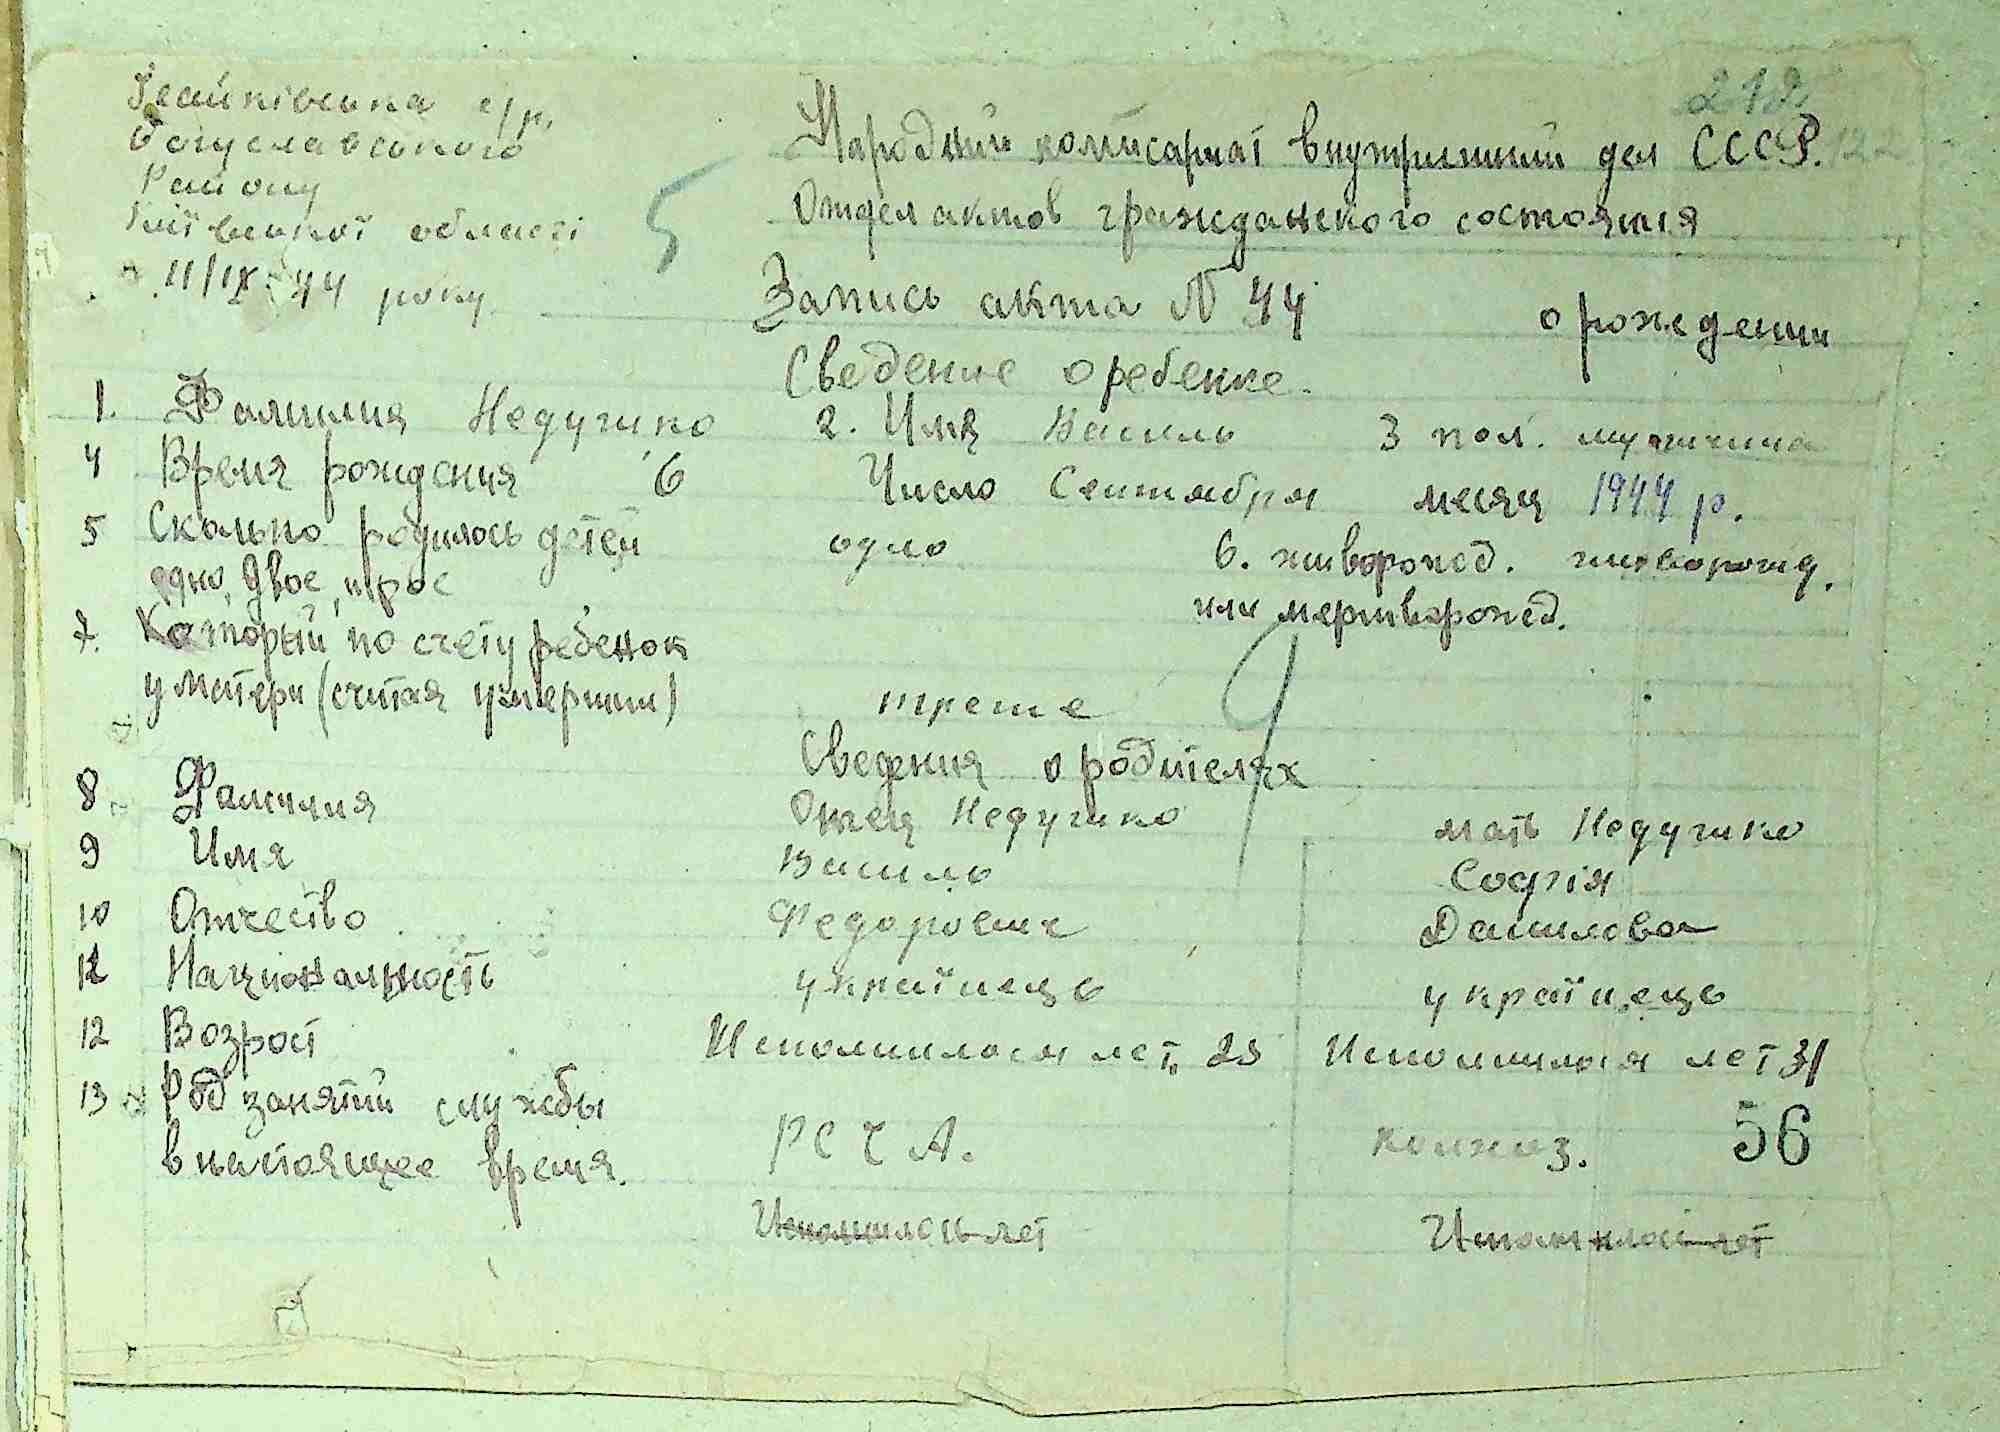 Ісайківська с/р,
Богуславського
Району
Київської області
11/IX-44 року
212
122
5
Народний комисариат внутриншии дел СССР.
Отдел актов гражданского состояния
Запись акта N 44 о рождении
Сведение о ребенке.
1. Фамилия Недугико 2. Имя Василь 3 пол. мужчина
4 Время рождения 6 Число Сентября месяц 1944 р.
5 Сколько родилось детей одно 6. живорожд. живорожд.
одно, двое, трое или мертворожд.
7. Который по счету ребенок
у матери (считая умершии) трете
Сведения о родителях
8 Фамилия Отец Недугико мать Недугико
9 Имя Василь Софія
10 Отчество Федорович Данилова
11 Национальность українець українець
12 Возраст Исполнилося лет, 25 Исполнилося лет 31
13 Род занятий службы
в настоящее время. РСЧА. колхоз. 56
Исполнилось лет Исполнилось лет